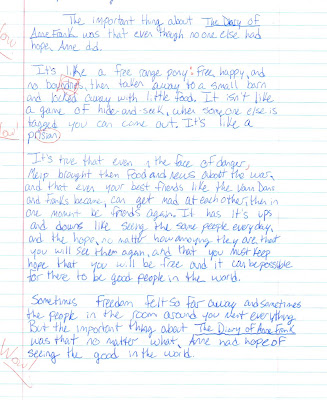 The important thing about The Diary of
Anne Frank was that even though no one else had
hope, Anne did.
Wow
It's like a free range pony: free, happy, and
no then taken away to a small barn
and locked away with little food. It isn't like
a game of hide-and-seek, when someone else is
tagged you can come out. It's like a
prisian
It's true that even in the face of danger,
Meip brought them food and news about the war,
and that even your best friends like the Van Dans
and franks became, can get mad at each other, then in
one moment be friends again. It has it's ups
and downs like seeing the same people everyday,
and the hope, no matter how annoying they are, that
you will see them again, and that you must keep
hope that you will be free and it can be possible
for there to be good people in the world.
Sometimes freedom felt so far away and sometimes
the people in the room around you went everything
But the important thing about The Diary of Anne Frank
was that no matter what, Anne had hope of
seeing the good in the world.
Wow!